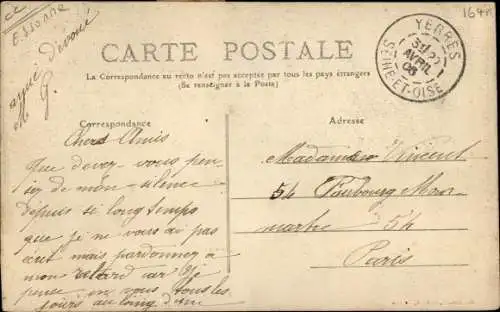 ESSONNE
164
YERRES
AVRIL
06
SEINE-ET-OISE
CARTE POSTALE
La Correspondance au recto n'est pas acceptée par tous les pays étrangers
(Se renseigner à la Poste)
Correspondance
Adresse
Chers Amis
Que devez-vous pen
ser de mon silence
depuis si longtemps
que je ne vous ai pas
écrit mais pardonnez à
mon retard car si je
pense en vous tous les
jours au long d'une
Madame Vincent
54 Faubourg Mon
martre 54
Paris